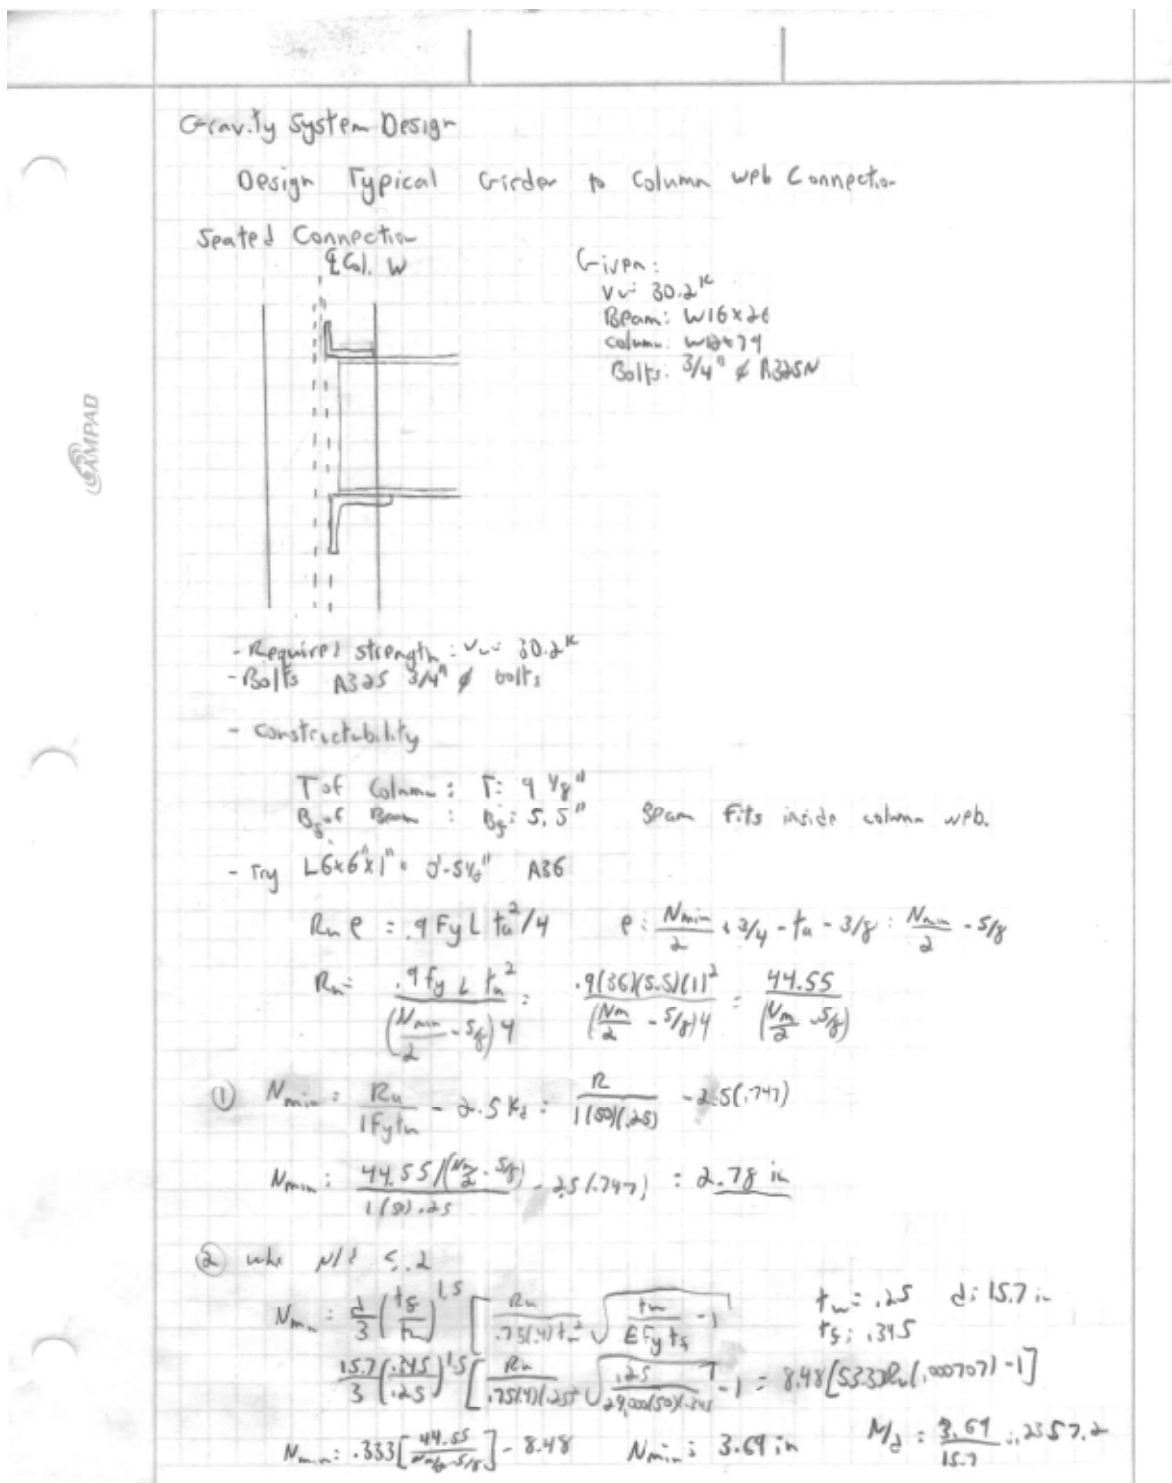 Gravity System Design
Design Typical Girder to Column web Connection
Seated Connection
℄ Col. W
Given:
Vu: 30.2ᵏ
Beam: W16x26
column: W12x79
Bolts: 3/4" ⌀ A325N
AMPAD
- Required strength: Vu: 30.2ᵏ
- Bolts A325 3/4" ⌀ bolts
- constructability
T of Column: T: 9 1/8"
Bf of Beam: Bf: 5.5" Beam fits inside column web.
- Try L6x6"x1" x 0'-5 1/2" A36
Rn e = .9 Fy L ta²/4 e: Nmin/2 + 3/4 - ta - 3/8 : Nmin/2 - 5/8
Rn: .9 fy L ta² / (Nmin/2 - 5/8)4 = .9(36)(5.5)(1)² / (Nm/2 - 5/8)4 = 44.55 / (Nm/2 - 5/8)
① Nmin: Ru / 1Fytw - 2.5 Kd = R / 1(50)(.25) - 2.5(.747)
Nmin: 44.55/(Nm/2 - 5/8) / 1(50).25 - 2.5(.747) = 2.78 in
② whe N/d ≤ .2
Nmin: d/3 (tf/tw)^1.5 [Ru / .75(.4)tw² √(tw / E Fy tf) - 1] tw = .25 d: 15.7 in
tf: .345
15.7/3 (.345/.25)^1.5 [Ru / .75(.4)(.25)² √(.25 / 29,000(50)(.345)) - 1] = 8.48[5.333Ru(.000707) - 1]
Nmin: .333[44.55 / Nm/2 - 5/8] - 8.48 Nmin: 3.69 in N/d = 3.69/15.7 : .235 > .2